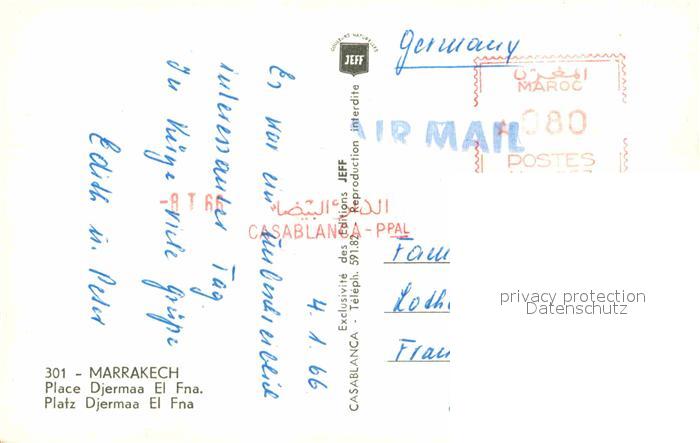 4. 1. 66
Es war ein unbeschreiblich
interessanter Tag
In Kürze viele Grüße
Edith u. Peter
301 - MARRAKECH
Place Djermaa El Fna.
Platz Djermaa El Fna
COULEURS NATURELLES
JEFF
Exclusivité des Editions JEFF
CASABLANCA - Téléph. 591.82 - Reproduction interdite
Germany
AIR MAIL
المغرب
MAROC
080
POSTES
-8 1 66
الدار البيضاء
CASABLANCA-PPAL
Fam
Loth
Fran
privacy protection
Datenschutz